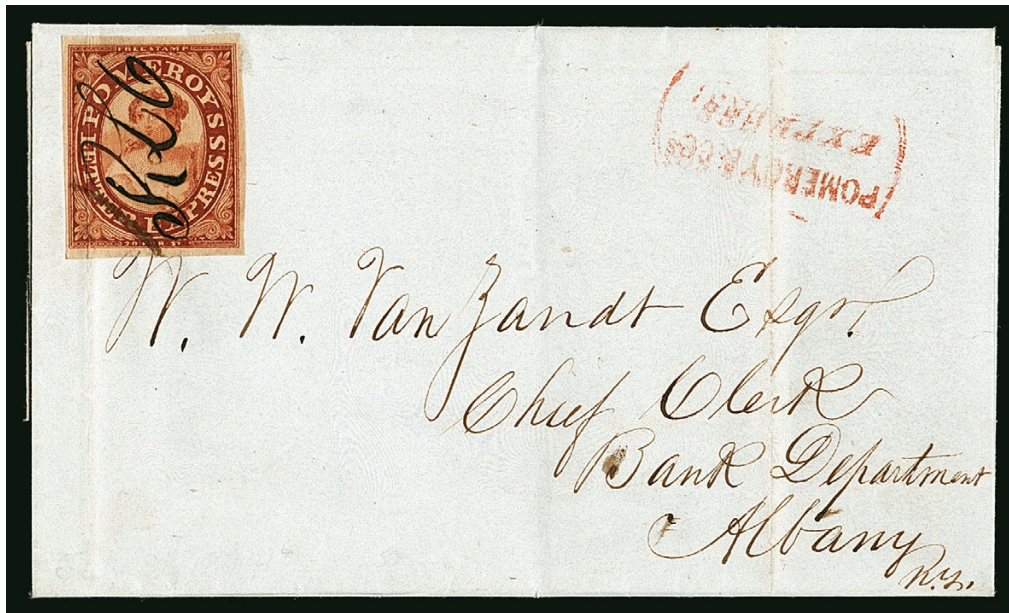 FREE STAMP
POMEROY'S
EXPRESS
POMEROY & CO'S
EXPRESS!
W. W. Van Zandt Esqr.
Chief Clerk
Bank Department
Albany
N.Y.